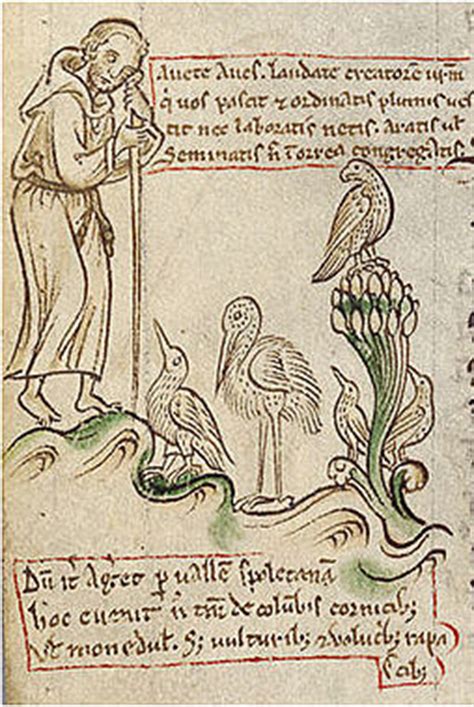 Avete Aves. laudate creatorē urm̄
q̇ vos pascit ⁊ ordinatis plumis ves
tit nec laboratis netis. Aratis ul̄
Seminatis n̄ horrea congregatis.
Dū it̄ Aḡet ꝑ vallē spoletanā
hoc evenit n̄ tm̄ de colūbis cornicib;
vel monedul̄. S; vulturib; ⁊ volucb; rapa
cib;